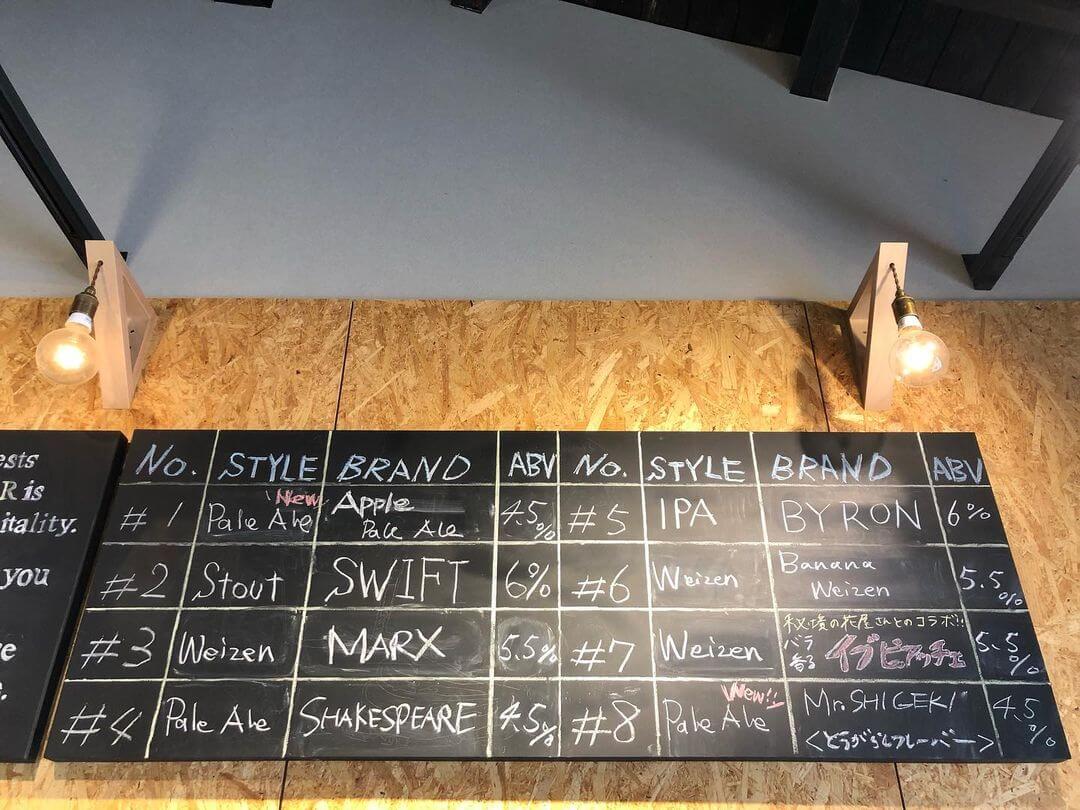 ests
R is
itality.
you
re
No. STYLE BRAND ABV No. STYLE BRAND ABV
#1 Pale Ale New Apple Pale Ale 4.5% #5 IPA BYRON 6%
#2 Stout SWIFT 6% #6 Weizen Banana Weizen 5.5%
#3 Weizen MARX 5.5% #7 Weizen の花屋さんとのコラボ!! バラ香る イブピアッチェ 5.5%
#4 Pale Ale SHAKESPEARE 4.5% #8 Pale Ale New!! Mr.SHIGEKI <とうがらしフレーバー> 4.5%